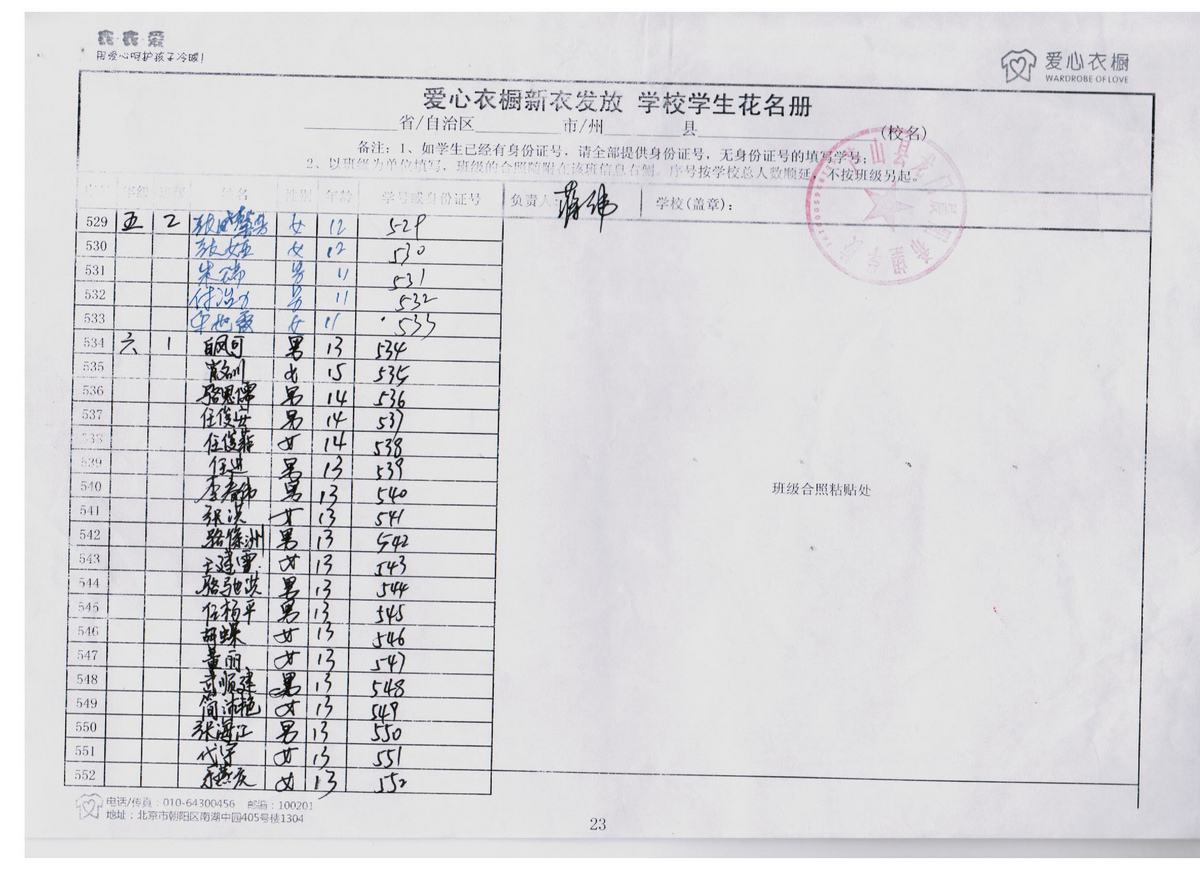 衣衣爱
用爱心呵护孩子冷暖！
爱心衣橱
WARDROBE OF LOVE
爱心衣橱新衣发放 学校学生花名册
省/自治区 市/州 县 (校名)
备注：1、如学生已经有身份证号，请全部提供身份证号，无身份证号的填写学号；
2、以班级为单位填写，班级的合照随附在该班信息右侧。序号按学校总人数顺延，不按班级另起。
年级 班级 姓名 性别 年龄 学号或身份证号 负责人： 学校(盖章)：
529 五 2 女 12 529
530 女 12 530
531 男 11 531
532 男 11 532
533 女 11 533
534 六 1 男 13 534
535 女 15 535
536 骆思儒 男 14 536
537 任俊安 男 14 537
538 任俊菲 女 14 538
539 任进 男 13 539
540 李春伟 男 13 540
541 张洪 女 13 541
542 骆保洲 男 13 542
543 王建雪 女 13 543
544 骆驰洪 男 13 544
545 任杨平 男 13 545
546 胡蝶 女 13 546
547 董丽 女 13 547
548 男 13 548
549 简沛艳 女 13 549
550 张海江 男 13 550
551 代宇 女 13 551
552 女 13 552
班级合照粘贴处
电话/传真：010-64300456 邮编：100201
地址：北京市朝阳区南湖中园405号楼1304
23